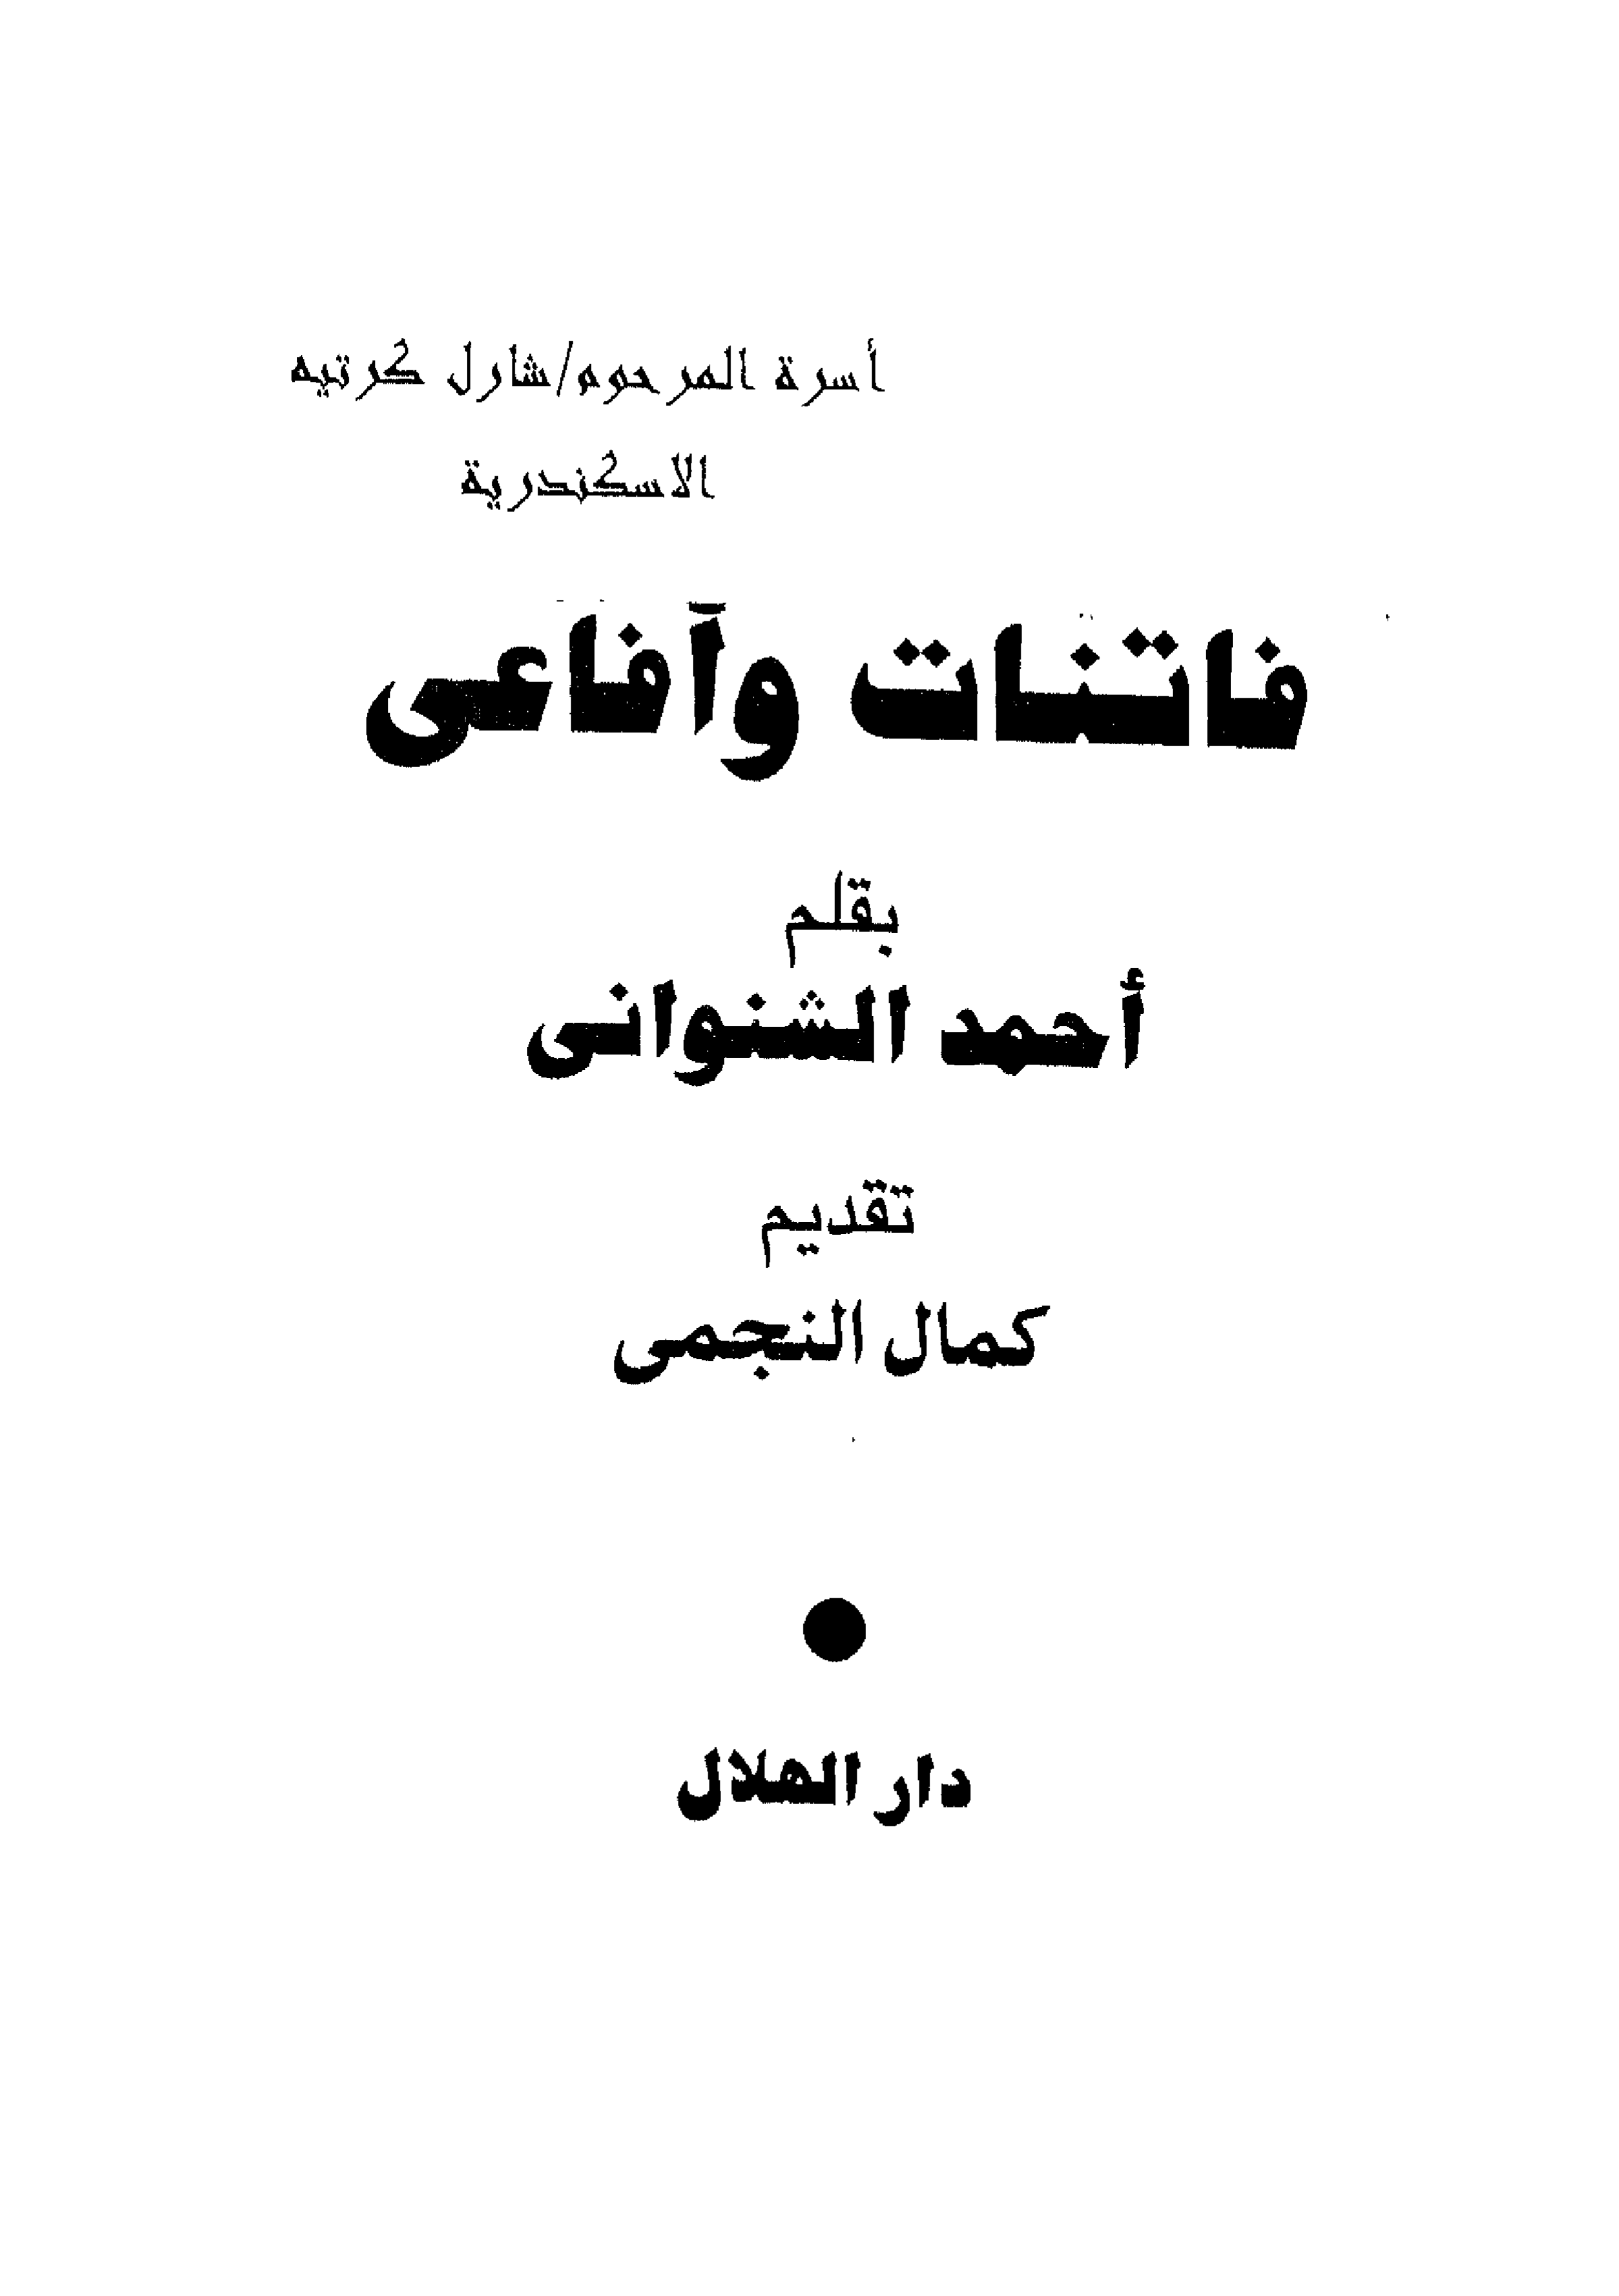 أسرة المرحوم/شارل كرتيه
الاسكندرية
فاتنات وآفاعى
بقلم
أحمد الشنوانى
تقديم
كمال النجمى
دار الهلال